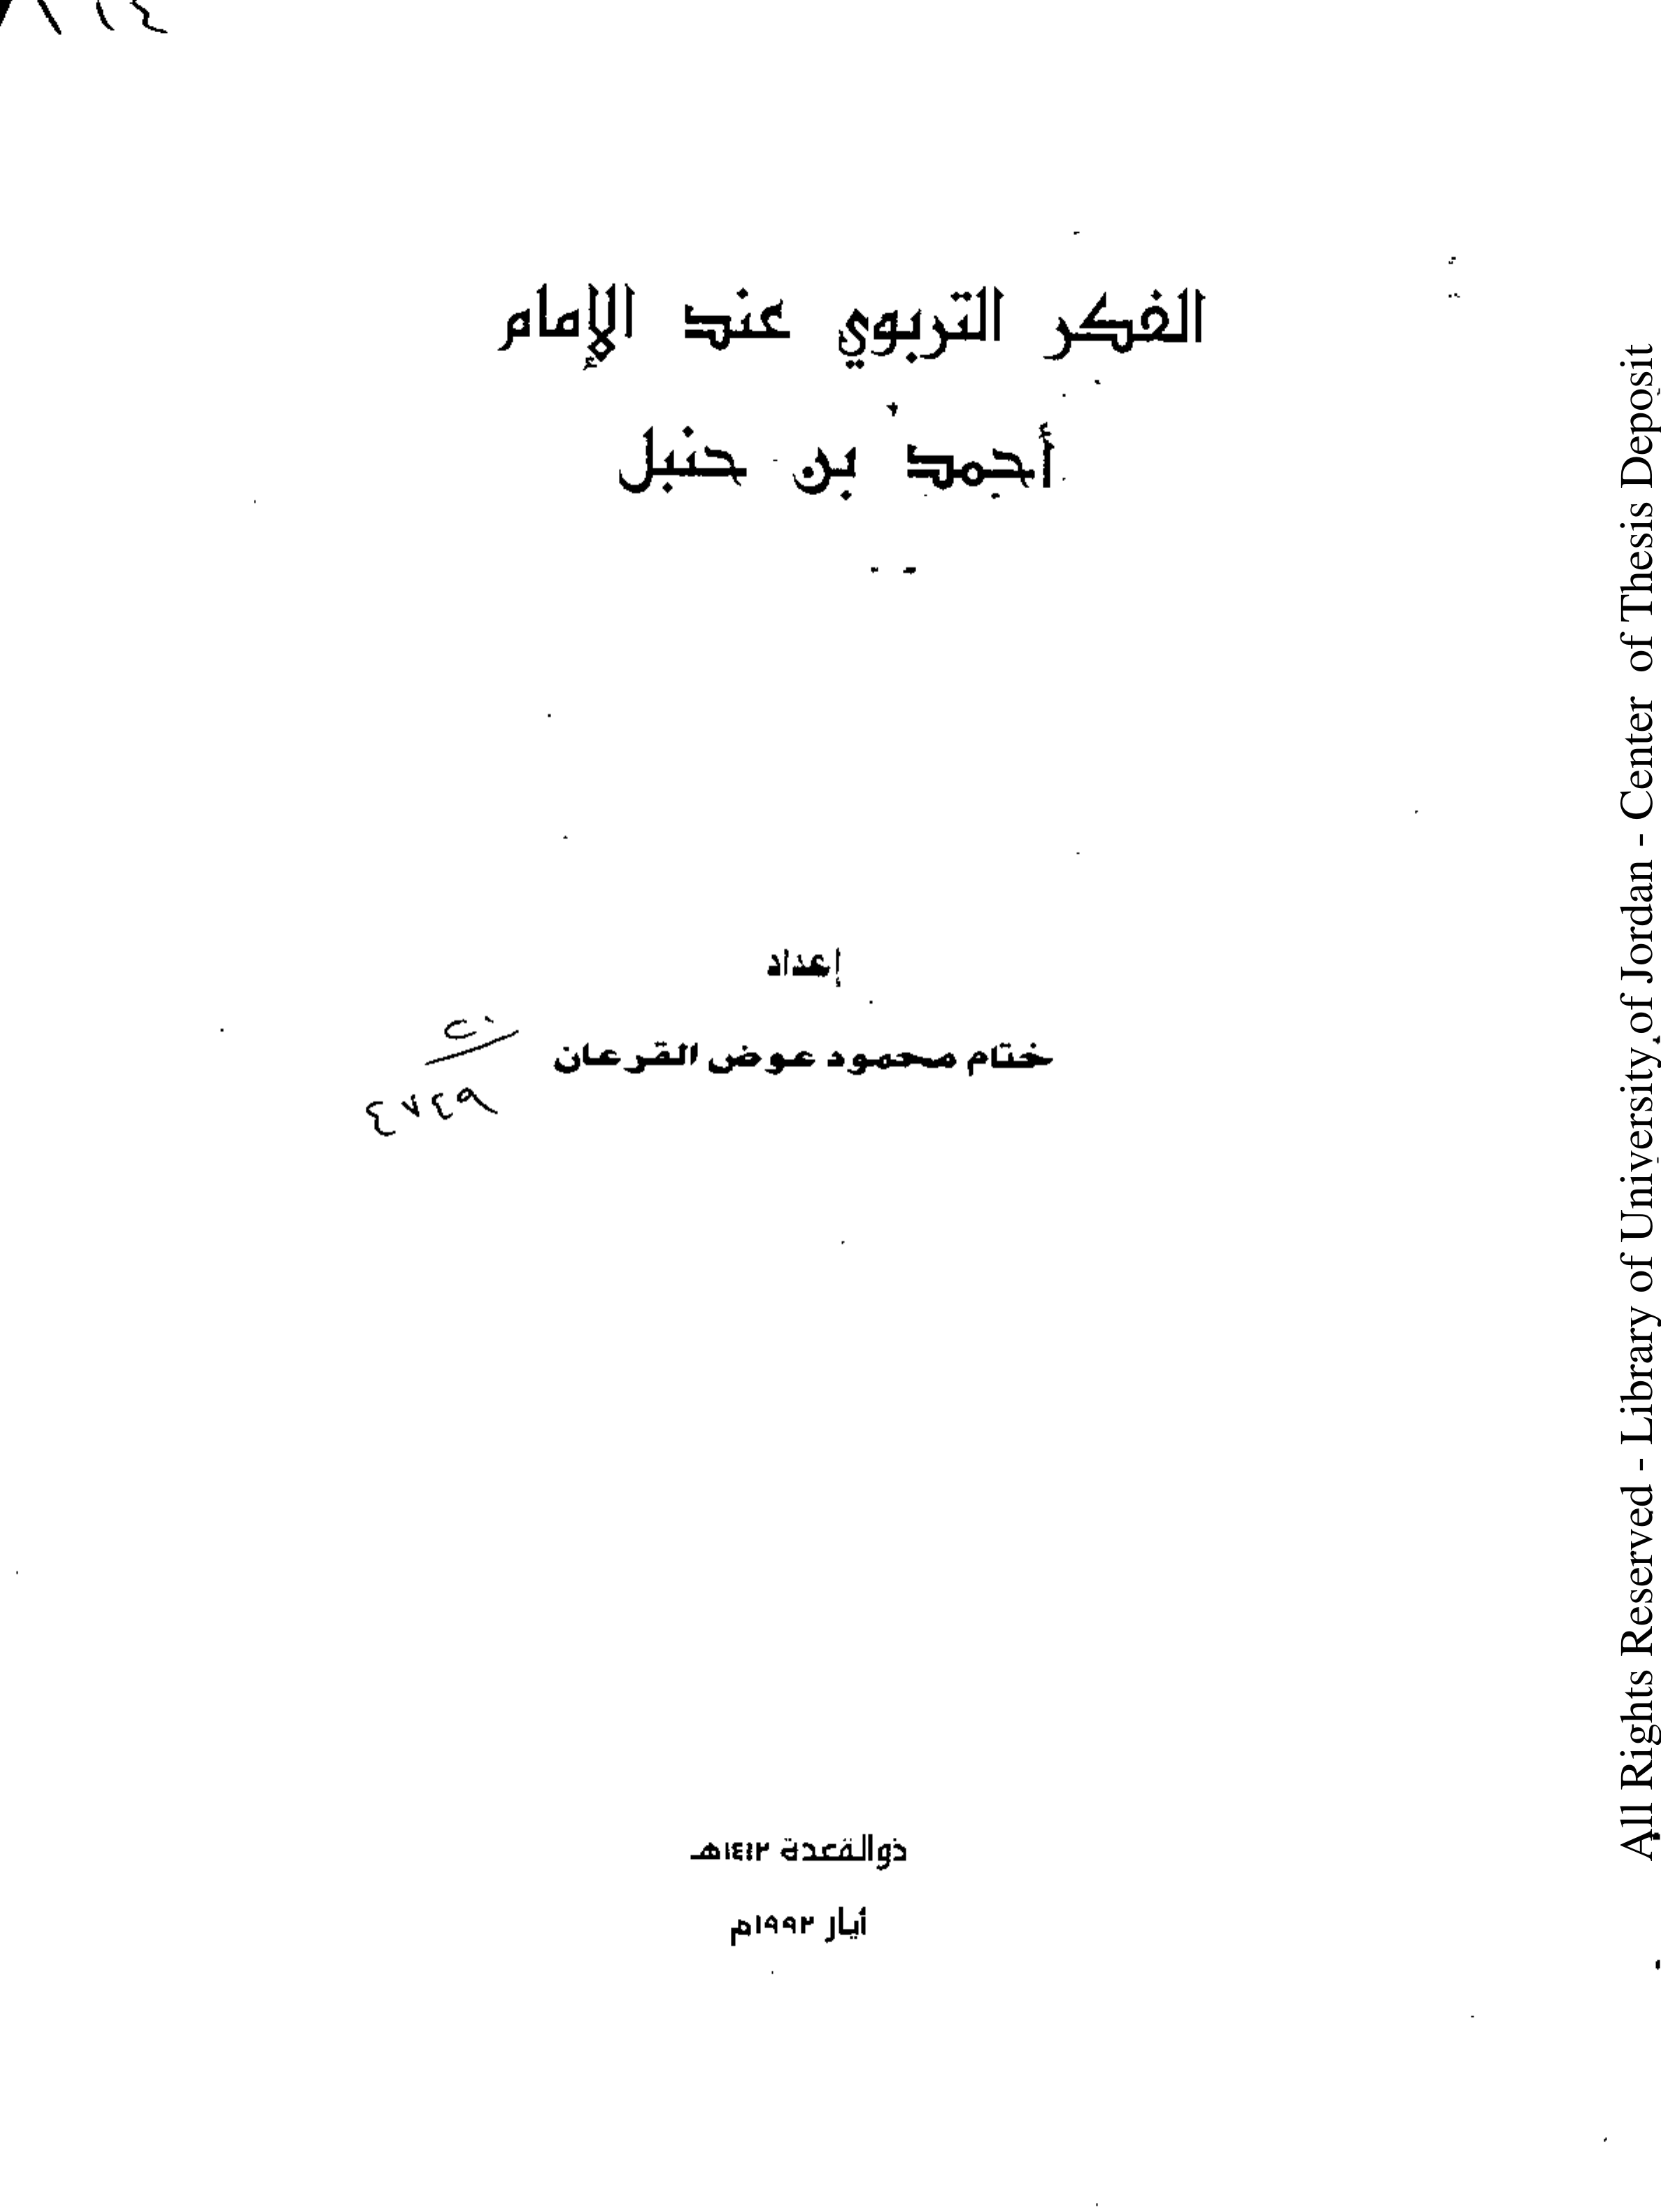 الفكر التربوي عند الإمام
أحمد بن حنبل
إعداد
ختام محمود عوض القرعان
٤٧٤٩
ذوالقعدة ١٤١٢هـ
أيار ١٩٩٢م
All Rights Reserved - Library of University of Jordan - Center of Thesis Deposit